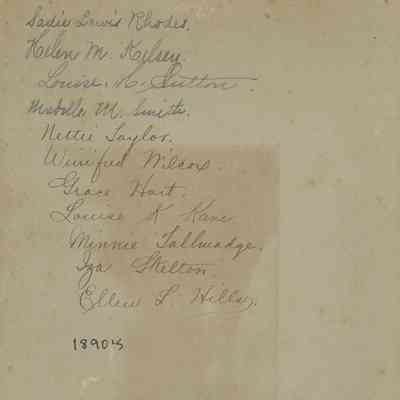 Sadie Lewis Rhodes.
Helen M. Kelsey.
Louise. H. Sutton.
M. Smith.
Nettie Taylor.
Winifred Wilcox.
Grace Hart.
Louise K Kane
Minnie Tallmadge.
Iza Skelton.
Ellen L Hills.
1890's